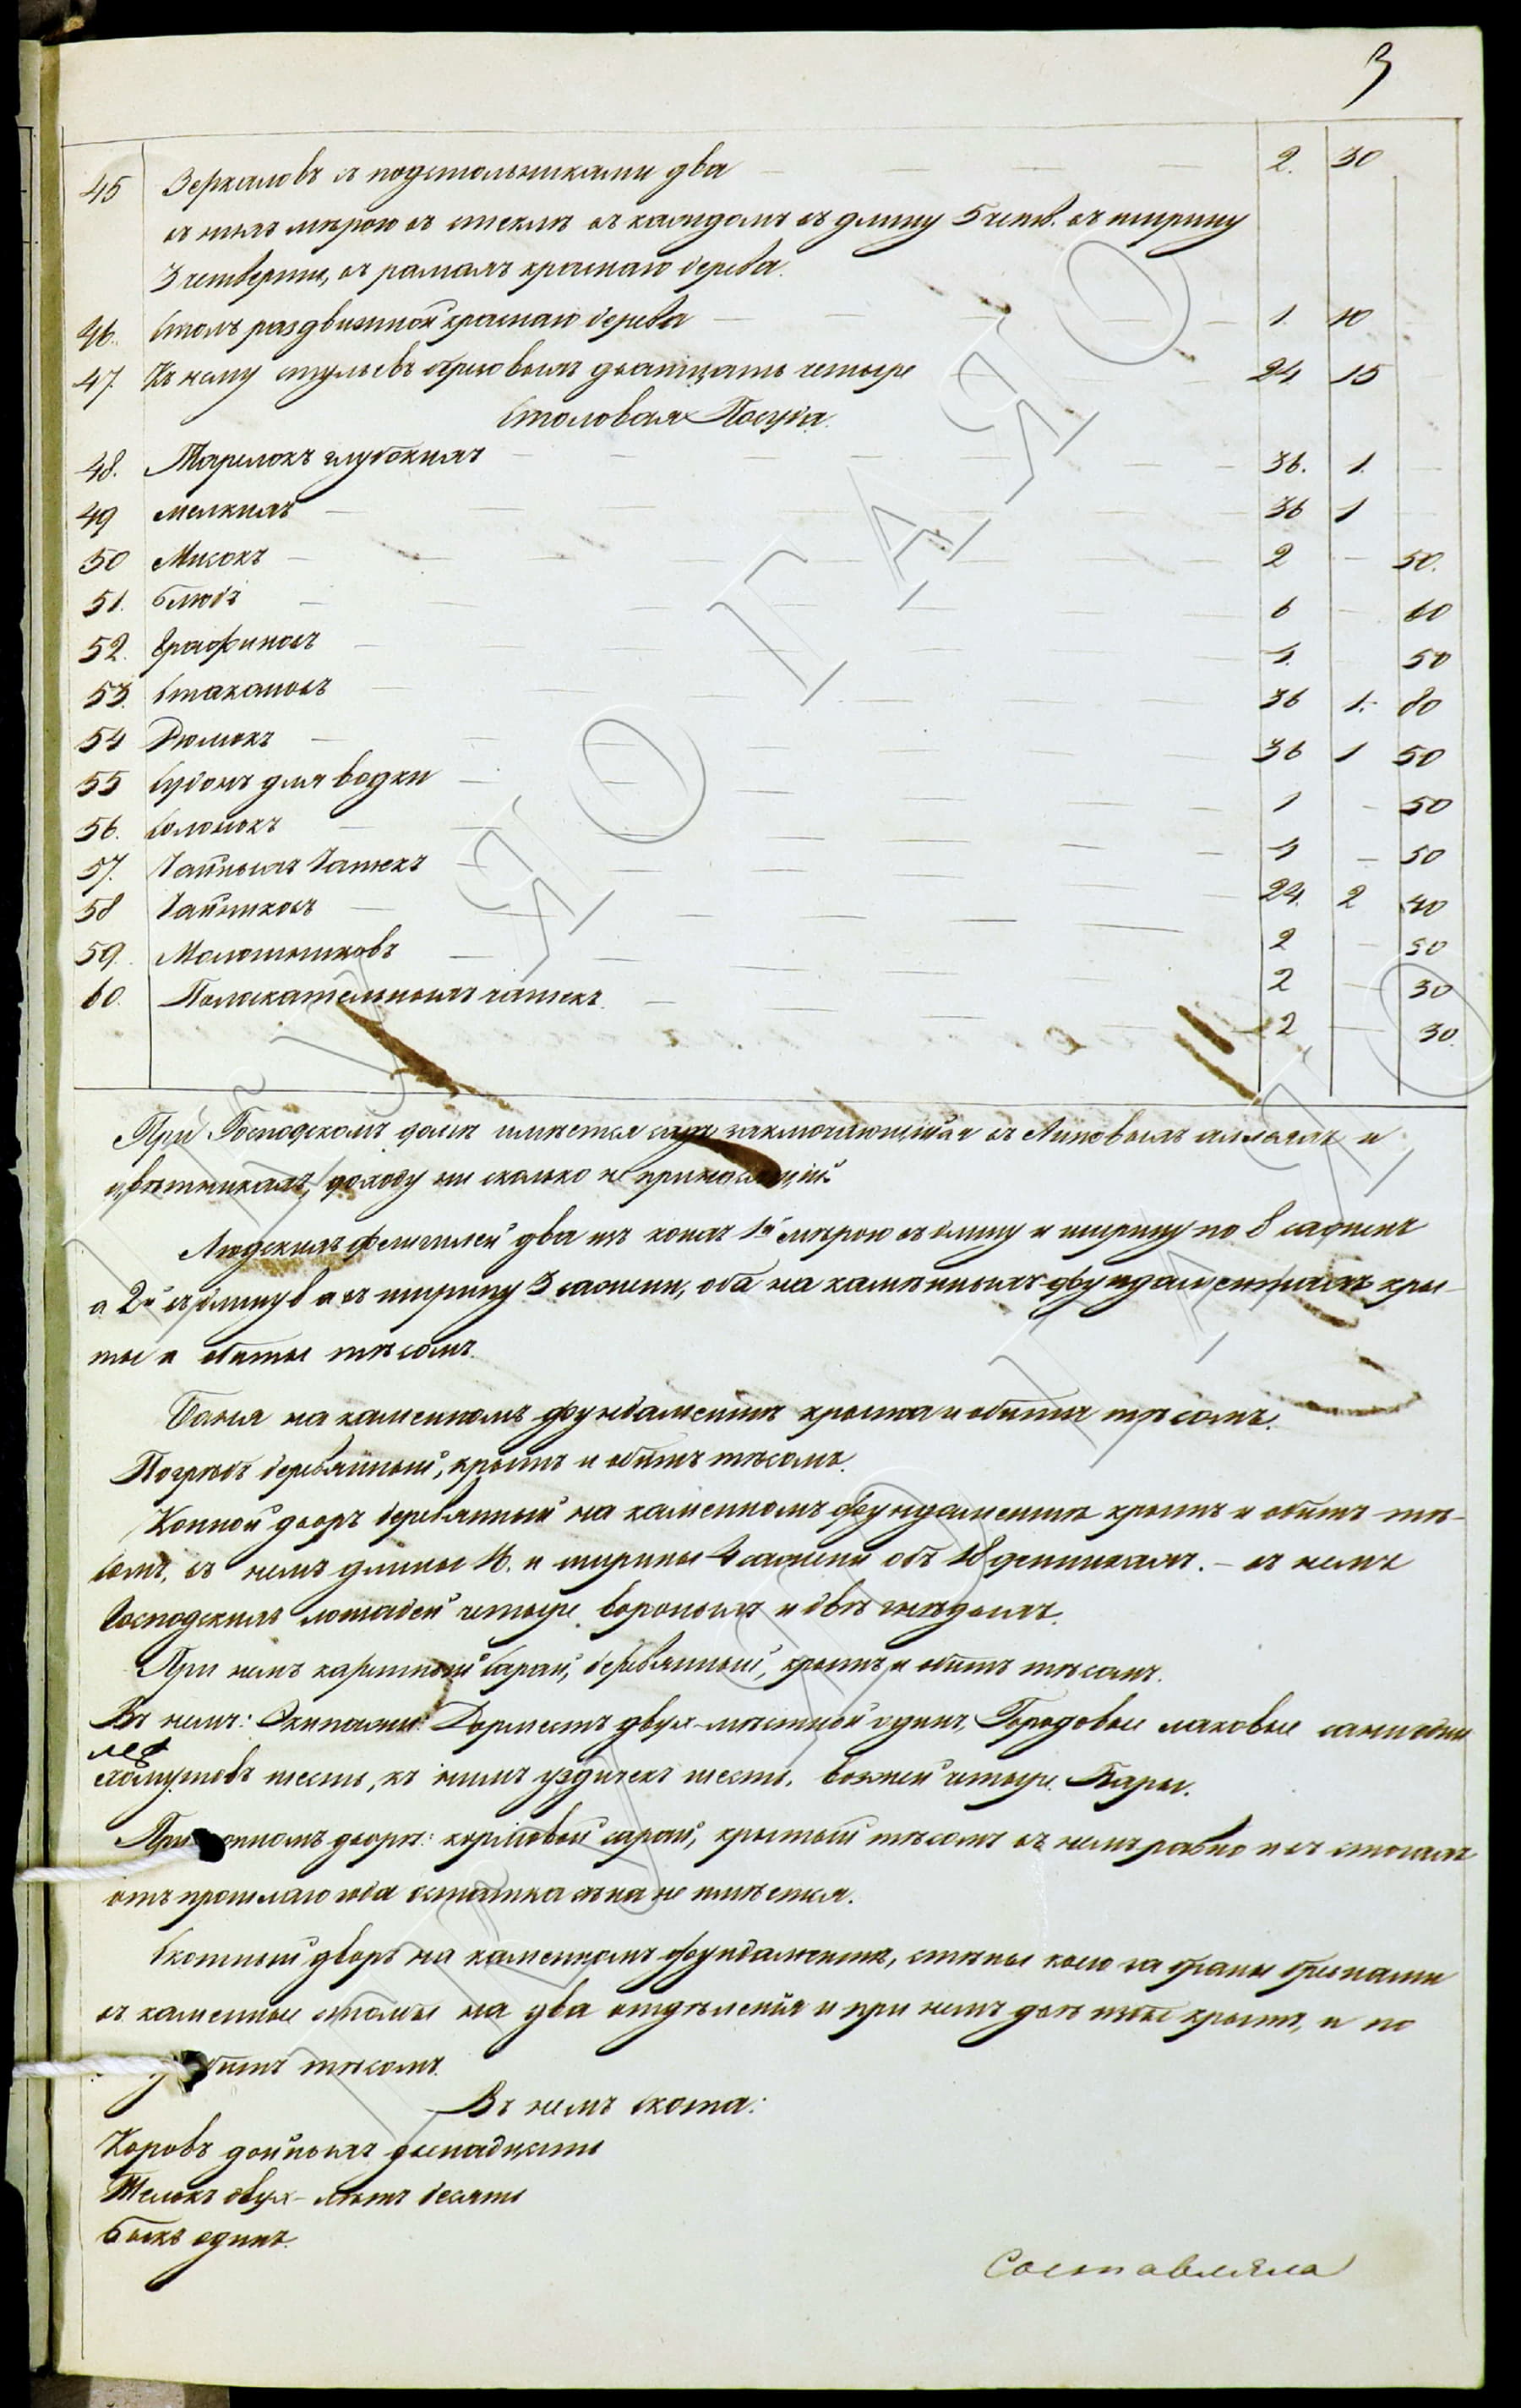 3
45 Зеркаловъ съ подстольниками два 2. 30
въ нихъ мѣрою въ стеклѣ въ каждомъ въ длину 5 четв. въ ширину
3 четверти, въ рамахъ краснаго дерева.
46. Столъ раздвижной краснаго дерева 1. 10
47. Къ нему стульевъ орѣховыхъ двадцать четыре 24 15
Столовая Посуда.
48. Тарелокъ глубокихъ 36. 1.
49 мелкихъ 36 1
50 Мисокъ 2 — 50.
51. Блюдъ 6 — 60
52. Графиновъ 4. 50
53. Стакановъ 36 1. 80
54 Рюмокъ 36 1 50
55 Судокъ для водки 1 — 50
56. Солонокъ 4 — 50
57. Чайныхъ Чашекъ 24. 2 40
58 Чайниковъ 2 — 50
59. Молошниковъ 2 — 30
60. Полоскательныхъ чашекъ 2 — 30.
При Господскомъ домѣ имѣется садъ заключающийся въ Липовыхъ аллеяхъ и
цвѣтникахъ, доходу ни сколько не приносящій.
Людскихъ флигилей два изъ коихъ 1й мѣрою въ длину и ширину по 8 саженъ
а 2й въ длину 6 а въ ширину 3 сажени, оба на каменныхъ фундаментахъ кры-
ты и обиты тѣсомъ.
Баня на каменномъ фундаментѣ крыта и обита тѣсомъ.
Погребъ деревянный, крытъ и обитъ тѣсомъ.
Конной дворъ деревянный на каменномъ фундаментѣ крытъ и обитъ тѣ-
сомъ, въ немъ длины 16. и ширины 4 сажени объ 18 денникахъ. – въ немъ
Господскихъ лошадей четыре вороныхъ и двѣ гнѣдыхъ.
При немъ каретный Сарай, деревянный, крытъ и обитъ тѣсомъ.
Въ немъ: Экипажи: Дормезъ двух-мѣстной одинъ, Городовые лаковые сани одни
хомутовъ шесть, къ нимъ уздечекъ шесть, возжей четыре Пары.
При онномъ дворѣ: кормовой сарай, крытый тѣсомъ въ немъ равно и въ стогахъ
отъ прошлаго года остатка сѣна не имѣется.
Скотный дворъ на каменномъ фундаментѣ, стѣны коего забраны бревнами
въ каменные столбы на два отдѣленія и при немъ двѣ избы крытъ, и по
битъ тѣсомъ.
Въ немъ Скота:
Коровъ дойныхъ двенадцать
Телокъ двух-лѣтъ десять
Быкъ одинъ.
Составляла